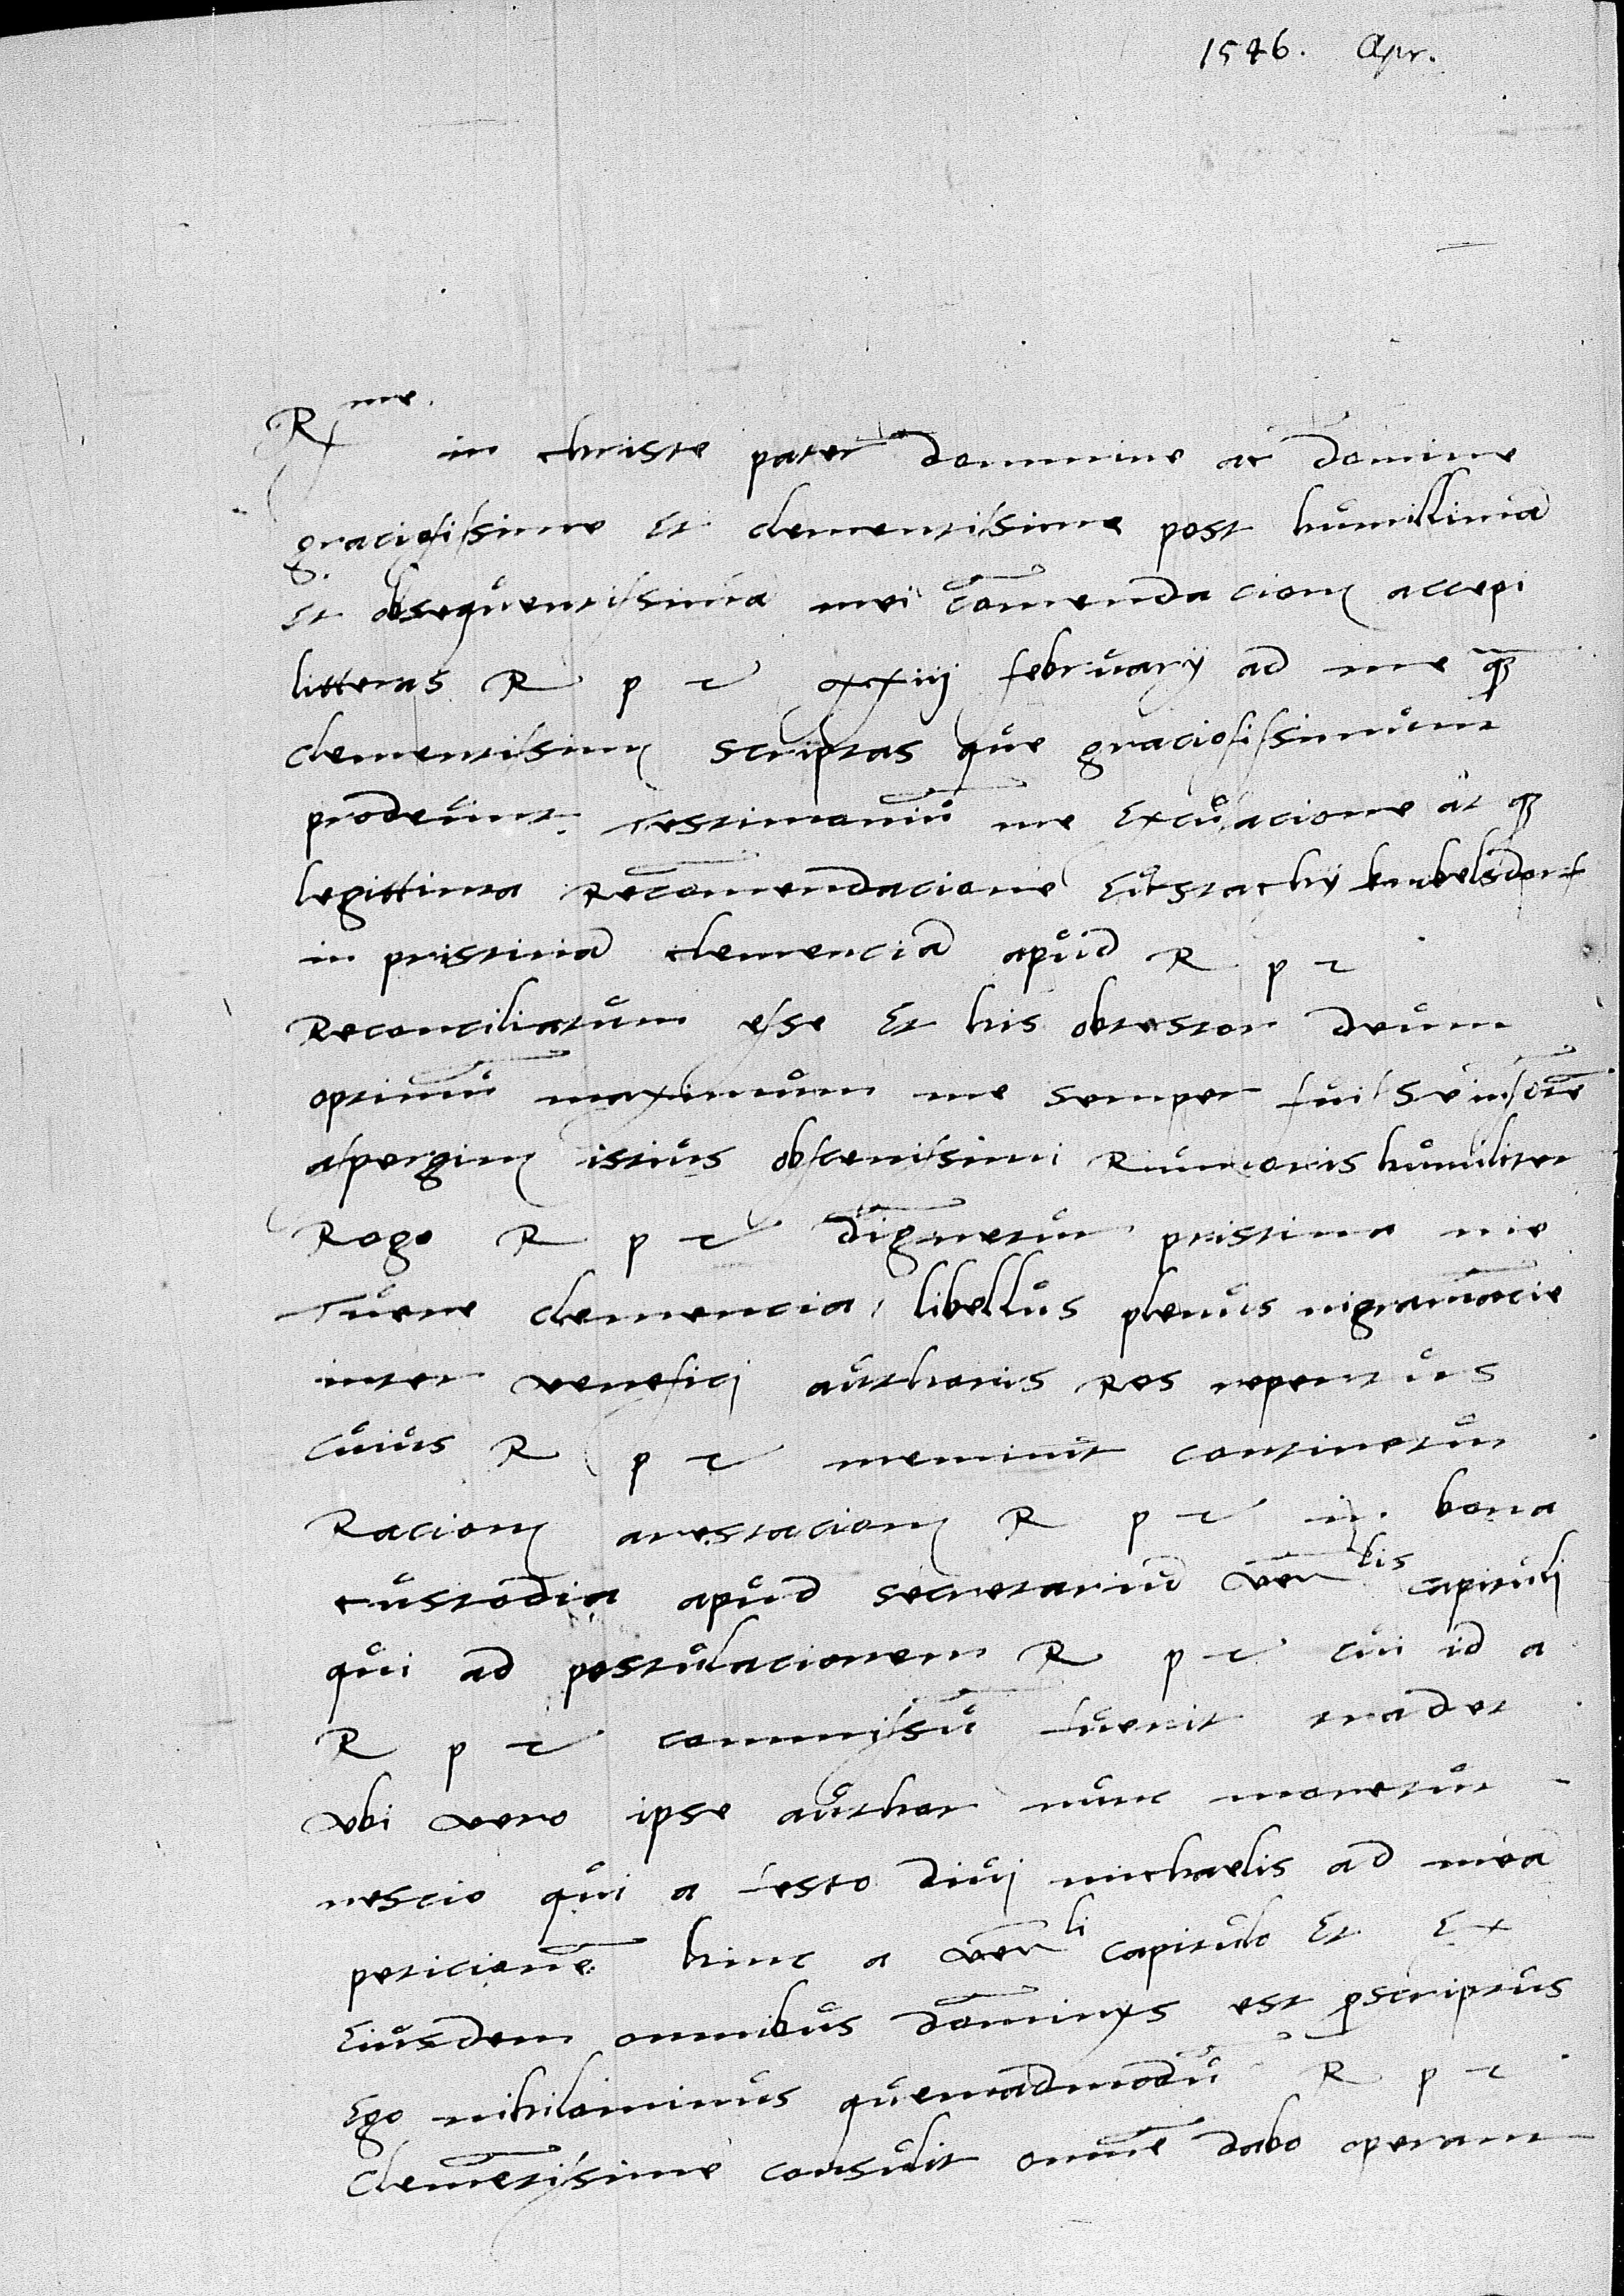 1546. Apr.
R me. in christe pater domine ac domine
graciosissime Et clementissime post humillima
Et obsequentissima mei comendacionem accepi
litteras R p t xxiij february ad me
clementissime scriptas que graciosissimum
prodeunt testimonium me Excusacione at q
legittima Recomendacione Eustachy knobelsdorf
in pristina clemencia apud R p t
Reconciliatum esse Et his obtestor deum
optimum maximum me semper fuisse insontem
aspergine istius obscenissimi Rumoris humiliter
Rogo R p t dignetur pristina me
tuere clemencia, libellus plenus nigramancie
inter venefici authoris Res repertus
cuius R p t meminit continetur
Racione arestacionis R p t in bona
custodia apud secretarium ven lis capituli
qui ad postulacionem R p t cui id a
R p t commissum fuerit tradet
vbi vero ipse author nunc moretur
nescio qui a festo diui michaelis ad mea
peticionem hinc a ven li capitulo Et Ex
Eiusdem omnibus dominys est pscriptus
Ego nihilominus quemadmodum R p t
Clementissime consulit omnem dabo operam